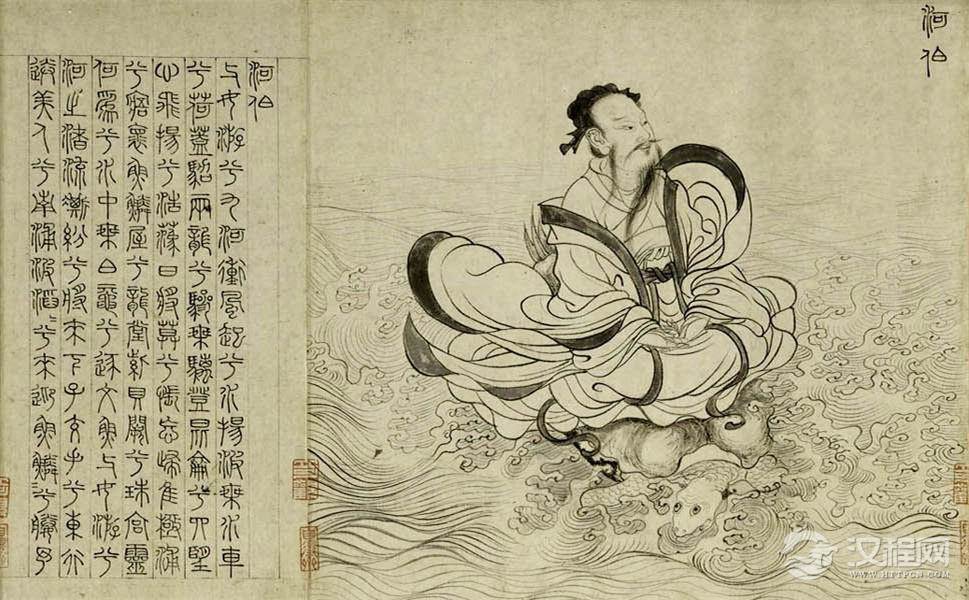 河伯
河伯
与女游兮九河衝風起兮水揚波乘水車
兮荷蓋駕兩龍兮驂乘螭登昆侖兮四望
心飛揚兮浩蕩日將莫兮悵忘歸隹極浦
兮寤褱魚鱗屋兮龍堂紫貝闕兮珠宮靈
何爲兮水中乘白黿兮逐文魚与女游兮
河之渚流澌紛兮將來下子交手兮東行
送美人兮南浦波滔〻兮來迎魚鱗兮媵予
汉程网
WWW.HTTPCN.COM